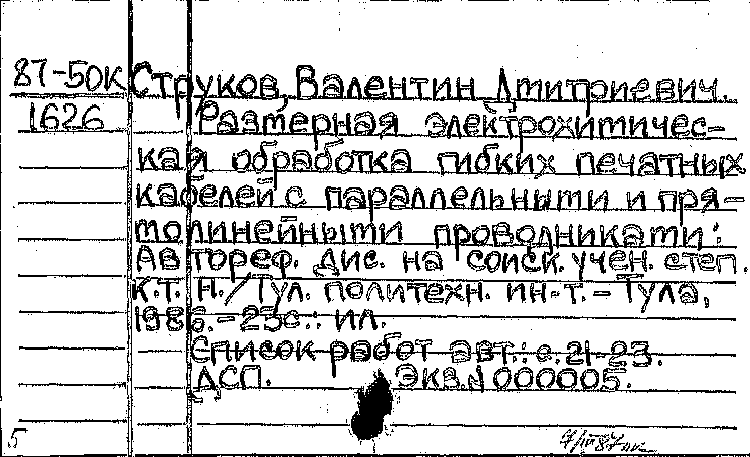 87-50к Струков, Валентин Дмитриевич.
1626 Размерная электрохимичес-
кая обработка гибких печатных
кабелей с параллельными и пря-
молинейными проводниками:
Автореф. дис. на соиск. учен. степ.
к.т.н./Тул. политехн. ин-т. - Тула,
1986. - 23с.: ил.
Список работ авт.: с. 21-23.
ДСП. Экз. N 000005.
5